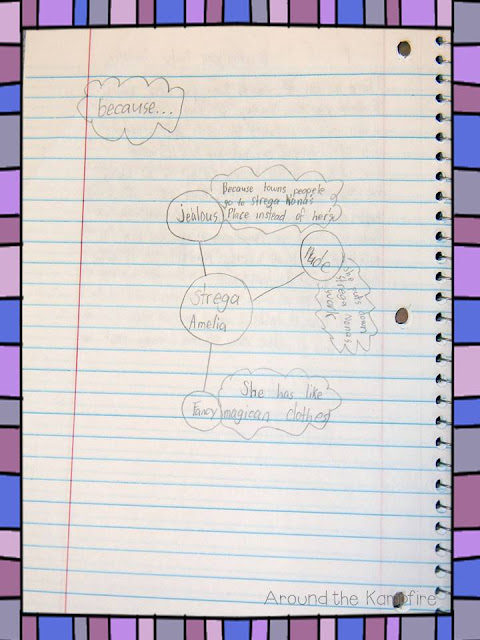 because...
Because towns people
go to Strega Nona's
Place instead of her's
Jealous
Rude
She puts down
Strega Nona's
work
Strega
Amelia
Fancy
She has like
magican clothes
Around the Kampfire